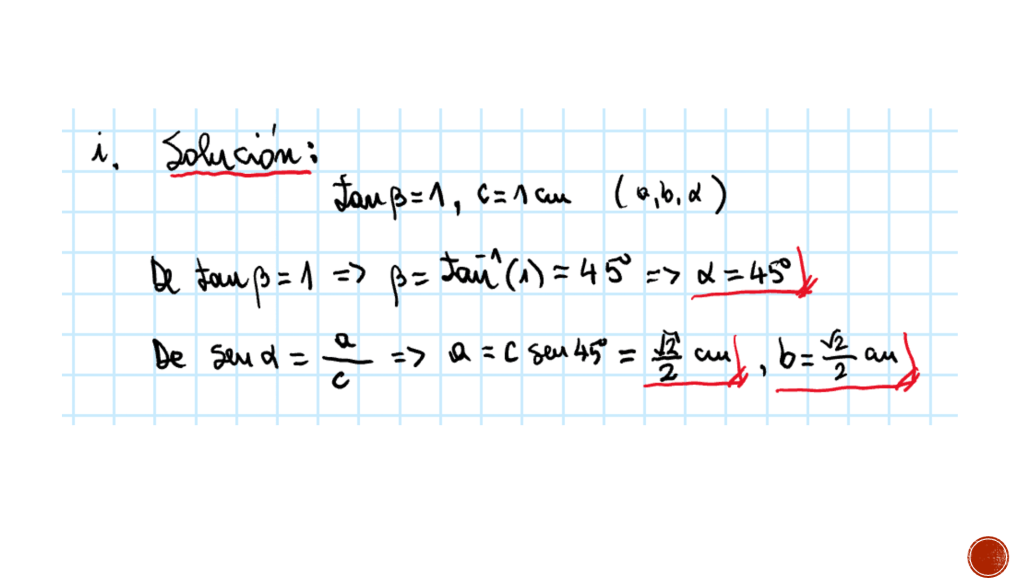 i. Solución:
tan β = 1, c = 1 cm (a, b, α)
De tan β = 1 => β = tan⁻¹(1) = 45° => α = 45°
De sen α = a/c => a = c sen 45° = √2/2 cm, b = √2/2 cm